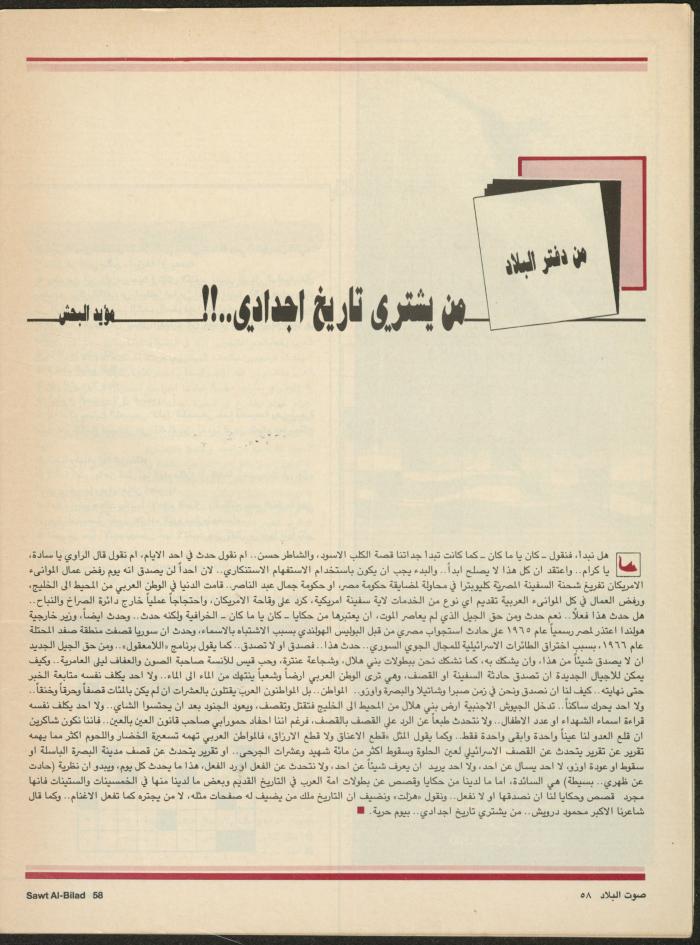 من دفتر البلاد
من يشتري تاريخ اجدادي..!!
مؤيد البحش
هل نبدأ، فنقول ـ كان يا ما كان ـ كما كانت تبدأ جداتنا قصة الكلب الاسود، والشاطر حسن.. ام نقول حدث في احد الايام، ام نقول قال الراوي يا سادة،
يا كرام.. واعتقد ان كل هذا لا يصلح ابداً.. والبدء يجب ان يكون باستخدام الاستفهام الاستنكاري.. لان احداً لن يصدق انه يوم رفض عمال الموانىء
الامريكان تفريغ شحنة السفينة المصرية كليوبترا في محاولة لمضايقة حكومة مصر، او حكومة جمال عبد الناصر.. قامت الدنيا في الوطن العربي من المحيط الى الخليج،
ورفض العمال في كل الموانىء العربية تقديم اي نوع من الخدمات لاية سفينة امريكية، كرد على وقاحة الامريكان، واحتجاجاً عملياً خارج دائرة الصراخ والنباح..
هل حدث هذا فعلاً.. نعم حدث ومن حق الجيل الذي لم يعاصر الموت، ان يعتبرها من حكايا ـ كان يا ما كان ـ الخرافية ولكنه حدث.. وحدث ايضاً، وزير خارجية
هولندا اعتذر لمصر رسمياً عام ١٩٦٥ على حادث استجواب مصري من قبل البوليس الهولندي بسبب الاشتباه بالاسماء، وحدث ان سوريا قصفت منطقة صفد المحتلة
عام ١٩٦٦، بسبب اختراق الطائرات الاسرائيلية للمجال الجوي السوري.. حدث هذا.. فصدق او لا تصدق.. كما يقول برنامج «اللامعقول».. ومن حق الجيل الجديد
ان لا يصدق شيئاً من هذا، وان يشكك به، كما نشكك نحن ببطولات بني هلال، وشجاعة عنترة، وحب قيس للآنسة صاحبة الصون والعفاف ليلى العامرية.. وكيف
يمكن للاجيال الجديدة ان تصدق حادثة السفينة او القصف، وهي ترى الوطن العربي ارضاً وشعباً ينتهك من الماء الى الماء.. ولا احد يكلف نفسه متابعة الخبر
حتى نهايته.. كيف لنا ان نصدق ونحن في زمن صبرا وشاتيلا والبصرة واوزو.. المواطن.. بل المواطنون العرب يقتلون بالعشرات ان لم يكن بالمئات قصفاً وحرقاً وخنقاً..
ولا احد يحرك ساكناً.. تدخل الجيوش الاجنبية ارض بني هلال من المحيط الى الخليج فتقتل وتقصف، ويعود الجنود بعد ان يحتسوا الشاي.. ولا احد يكلف نفسه
قراءة اسماء الشهداء او عدد الاطفال.. ولا نتحدث طبعاً عن الرد على القصف بالقصف، فرغم اننا احفاد حمورابي صاحب قانون العين بالعين.. فاننا نكون شاكرين
ان قلع العدو لنا عيناً واحدة وابقى واحدة فقط.. وكما يقول المثل «قطع الاعناق ولا قطع الارزاق» فالمواطن العربي تهمه تسعيرة الخضار واللحوم اكثر مما يهمه
تقرير عن تقرير يتحدث عن القصف الاسرائيلي لعين الحلوة وسقوط اكثر من مائة شهيد وعشرات الجرحى.. او تقرير يتحدث عن قصف مدينة البصرة الباسلة او
سقوط او عودة اوزو، لا احد يسال عن احد، ولا احد يريد ان يعرف شيئاً عن احد، ولا نتحدث عن الفعل او رد الفعل، هذا ما يحدث كل يوم، ويبدو ان نظرية (حادت
عن ظهري.. بسيطة) هي السائدة، اما ما لدينا من حكايا وقصص عن بطولات امة العرب في التاريخ القديم وبعض ما لدينا منها في الخمسينات والستينات فانها
مجرد قصص وحكايا لنا ان نصدقها او لا نفعل.. ونقول «هزلت» ونضيف ان التاريخ ملك من يضيف له صفحات مثله، لا من يجتره كما تفعل الاغنام.. وكما قال
شاعرنا الاكبر محمود درويش.. من يشتري تاريخ اجدادي.. بيوم حرية.
صوت البلاد ٥٨
Sawt Al-Bilad 58